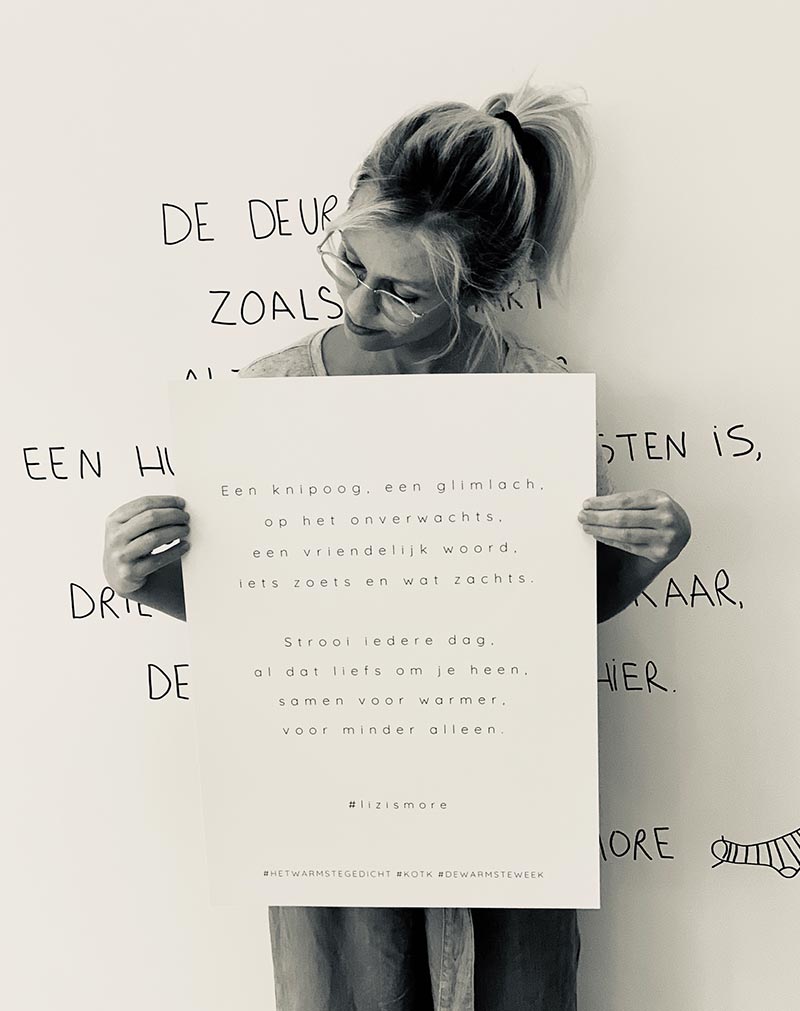 DE DEUR
ZOALS
EEN
IS,
HIER.
Een knipoog, een glimlach,
op het onverwachts,
een vriendelijk woord,
iets zoets en wat zachts.
Strooi iedere dag,
al dat liefs om je heen,
samen voor warmer,
voor minder alleen.
#lizismore
#HETWARMSTEGEDICHT #KOTK #DEWARMSTEWEEK